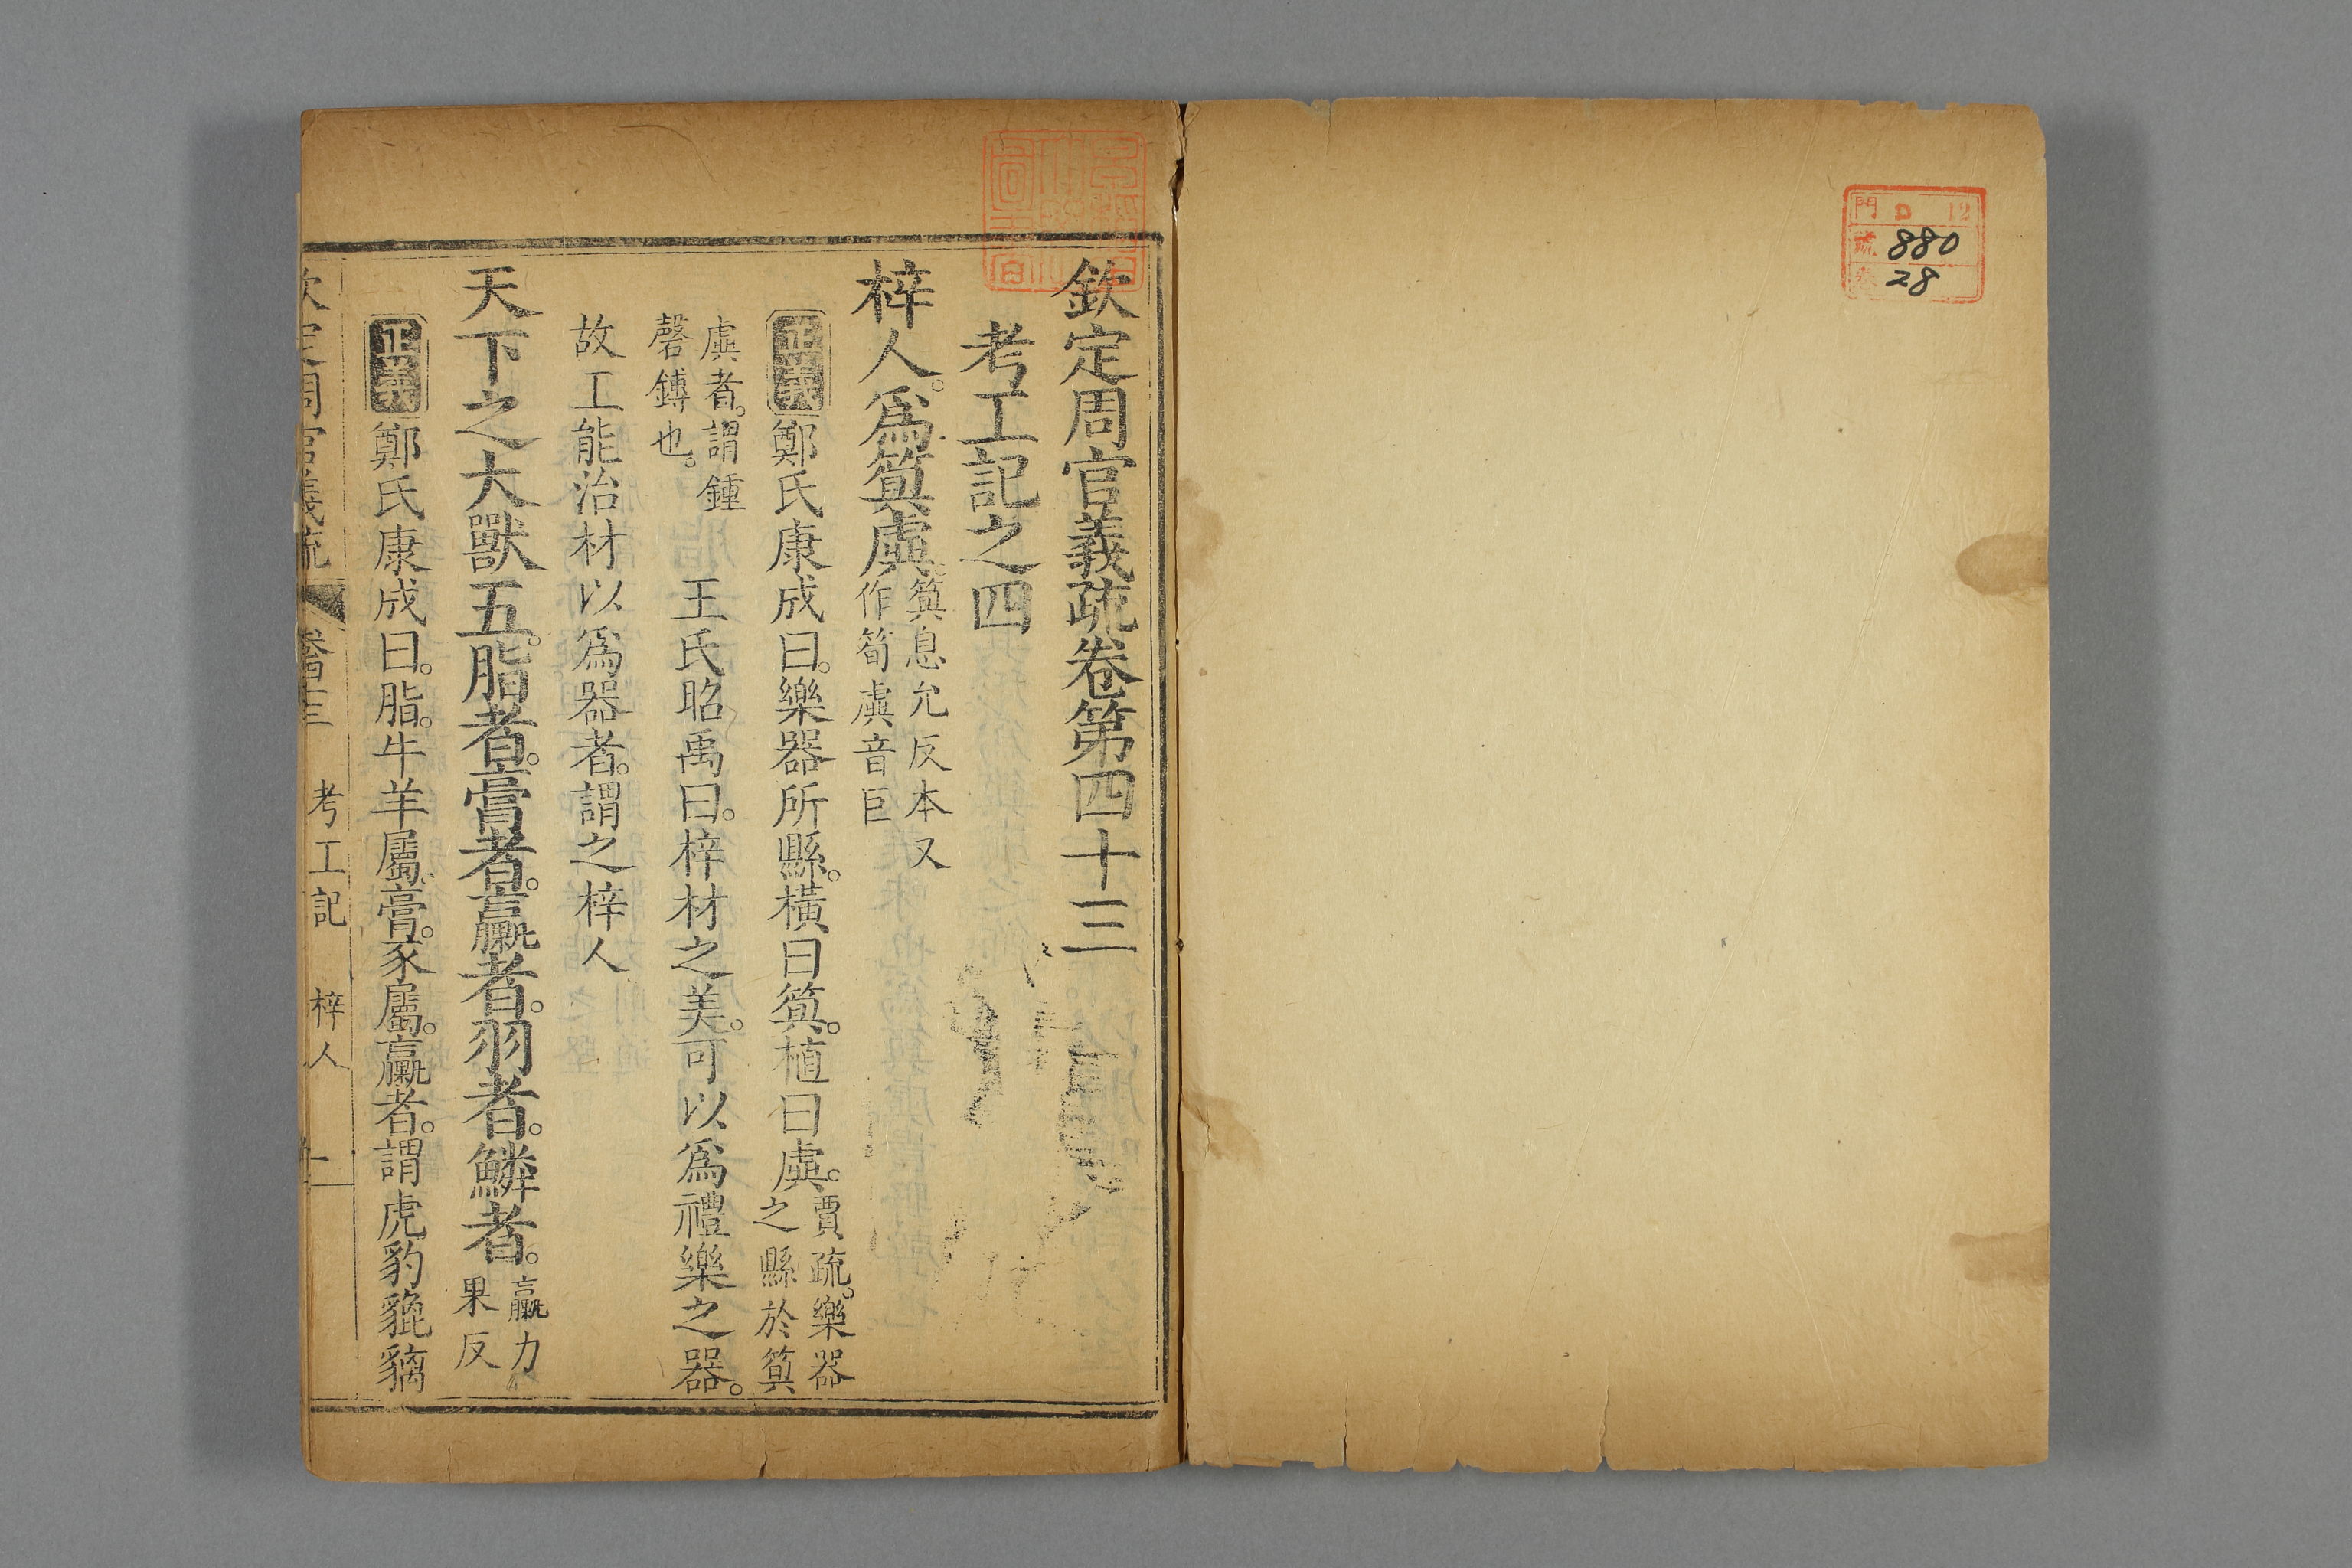 門 D 12
號 880
卷 28
欽定周官義疏卷第四十三
考工記之四
梓人。爲筍虡。筍息允反本又
作筍虡音巨
正義 鄭氏康成曰。樂器所縣。橫曰筍。植曰虡。賈疏。樂器
之縣於筍
虡者。謂鍾
磬鎛也。
王氏昭禹曰。梓材之美。可以爲禮樂之器。
故工能治材以爲器者。謂之梓人
天下之大獸五。脂者。膏者。臝者。羽者。鱗者。臝力
果反
正義 鄭氏康成曰。脂。牛羊屬。膏。豕屬。臝者。謂虎豹貔貐
欽定周官義疏 卷四十三 考工記 梓人